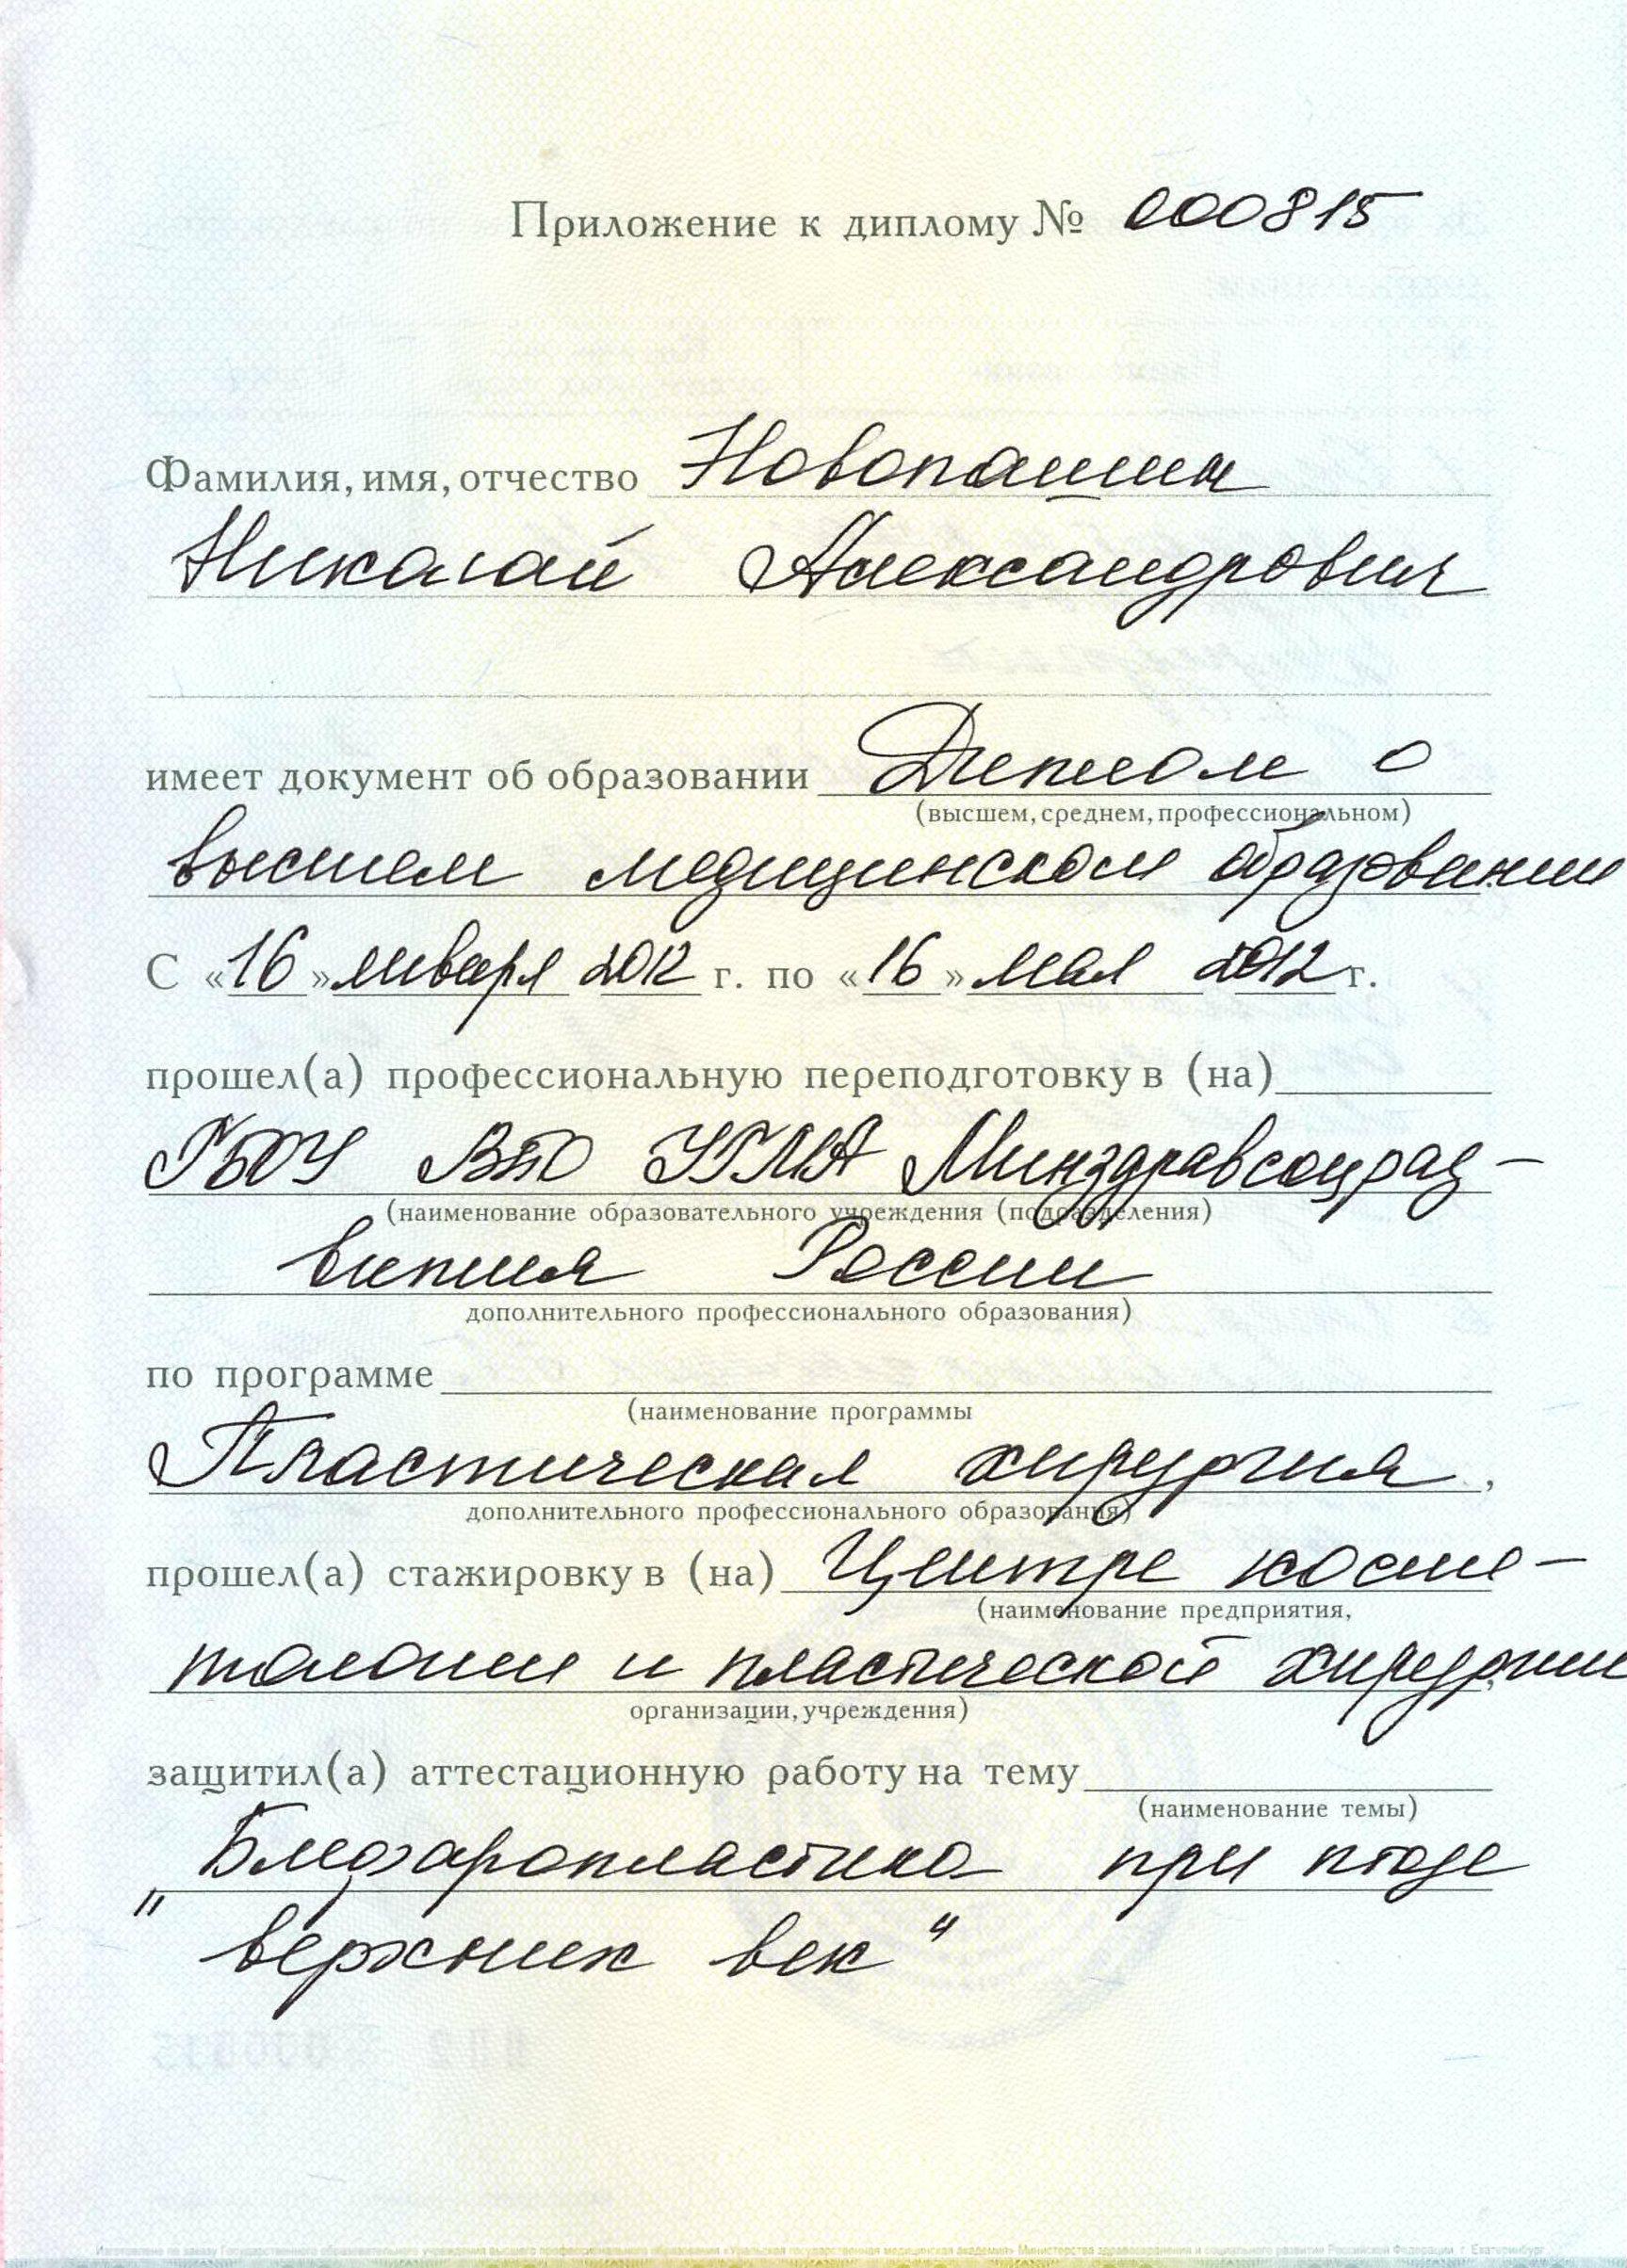 Приложение к диплому № 000815
Фамилия, имя, отчество Новопашин
Николай Александрович
имеет документ об образовании Диплом о
(высшем, среднем, профессиональном)
высшем медицинском образовании
С «16» января 2012 г. по «16» мая 2012 г.
прошел(а) профессиональную переподготовку в (на)
ГБОУ ВПО УГМА Минздравсоцраз-
(наименование образовательного учреждения (подразделения)
вития России
дополнительного профессионального образования)
по программе
(наименование программы
Пластическая хирургия,
дополнительного профессионального образования)
прошел(а) стажировку в (на) Центре косме-
(наименование предприятия,
тологии и пластической хирургии,
организации, учреждения)
защитил(а) аттестационную работу на тему
(наименование темы)
"Блефаропластика при птозе
верхних век"
Изготовлено по заказу Государственного образовательного учреждения высшего профессионального образования «Уральская государственная медицинская академия» Министерства здравоохранения и социального развития Российской Федерации, г. Екатеринбург